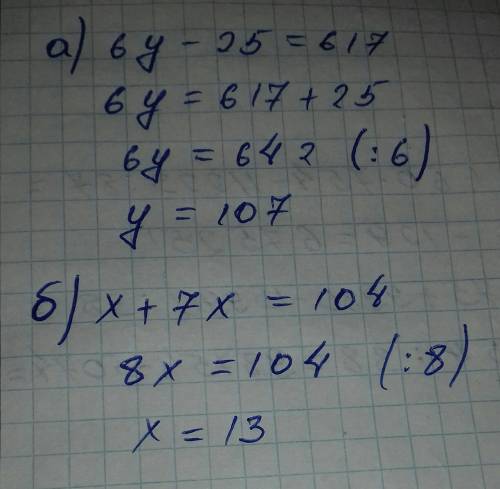 а) 6y - 25 = 617
6y = 617 + 25
6y = 642 (:6)
y = 107
б) x + 7x = 104
8x = 104 (:8)
x = 13